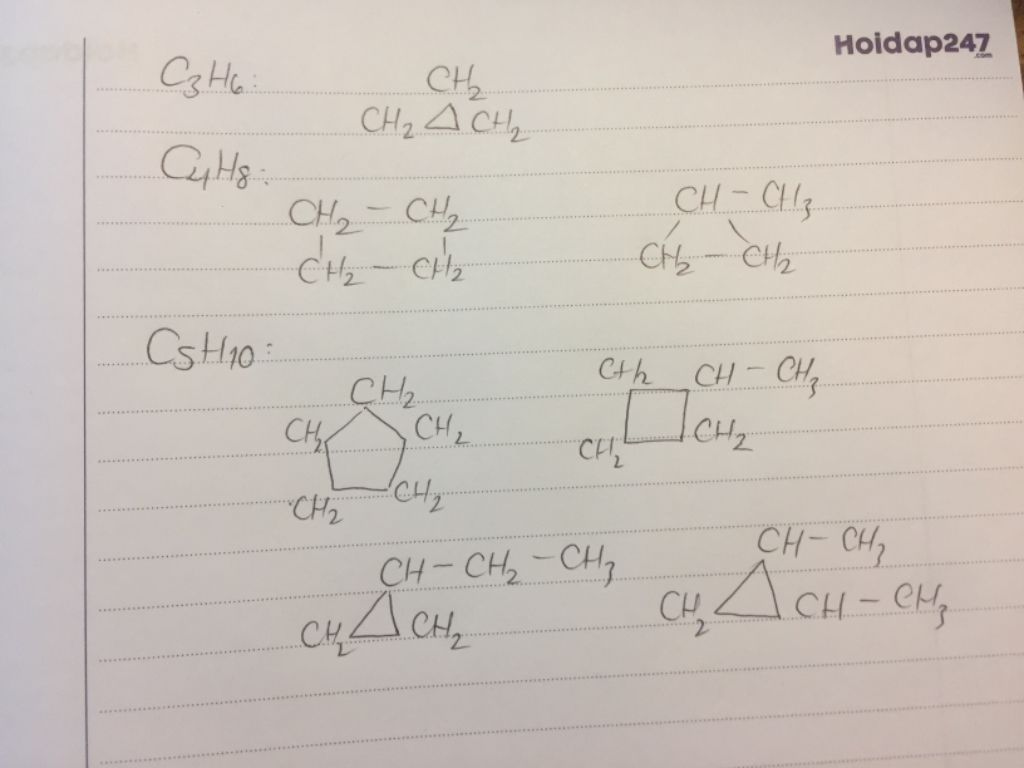 Hoidap247
.com
C3H6:
CH2
CH2 CH2
C4H8:
CH2 - CH2
CH2 - CH2
CH - CH3
CH2 - CH2
C5H10:
CH2
CH2 CH2
CH2 CH2
CH2 CH - CH3
CH2 CH2
CH - CH2 - CH3
CH2 CH2
CH - CH3
CH2 CH - CH3